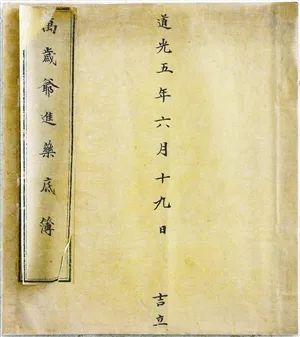 道光五年六月十九日 吉立
萬歲爺進藥底簿